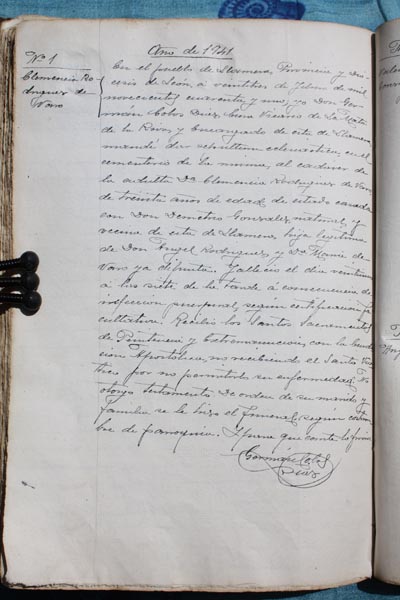 Año de 1941
Nº 1
Clemencia Ro-
driguez de
Varo
En el pueblo de Llamera, Provincia y Dió-
cesis de León, a veintitres de Febrero de mil
novecientos cuarenta y uno, yo Don Ger-
mán Cobos Diez, Cura Vicario de La Mata
de la Riva y Encargado de esta de Llamera,
mandé dar sepultura eclesiástica, en el
cementerio de la misma, al cadáver de
la adulta Dª Clemencia Rodriguez de Varo
de treinta años de edad, de estado casada
con Don Demetrio Gonzalez, natural y
vecina de esta de Llamera, hija legítima
de Don Angel Rodriguez, y Dª María de
Varo ya difunta. Falleció el dia veintiuno
a las siete de la tarde a consecuencia de
infección puerperal, según certificación fa-
cultativa. Recibió los Santos Sacramentos
de Penitencia y Extremaunción, con la Bendi-
ción Apostólica, no recibiendo el Santo Viá-
tico por no permitirlo su enfermedad. No
otorgó testamento. De orden de su marido y
familia se le hizo el funeral según costum-
bre de parroquia. Y para que conste lo firmo
German Cobos
Diez